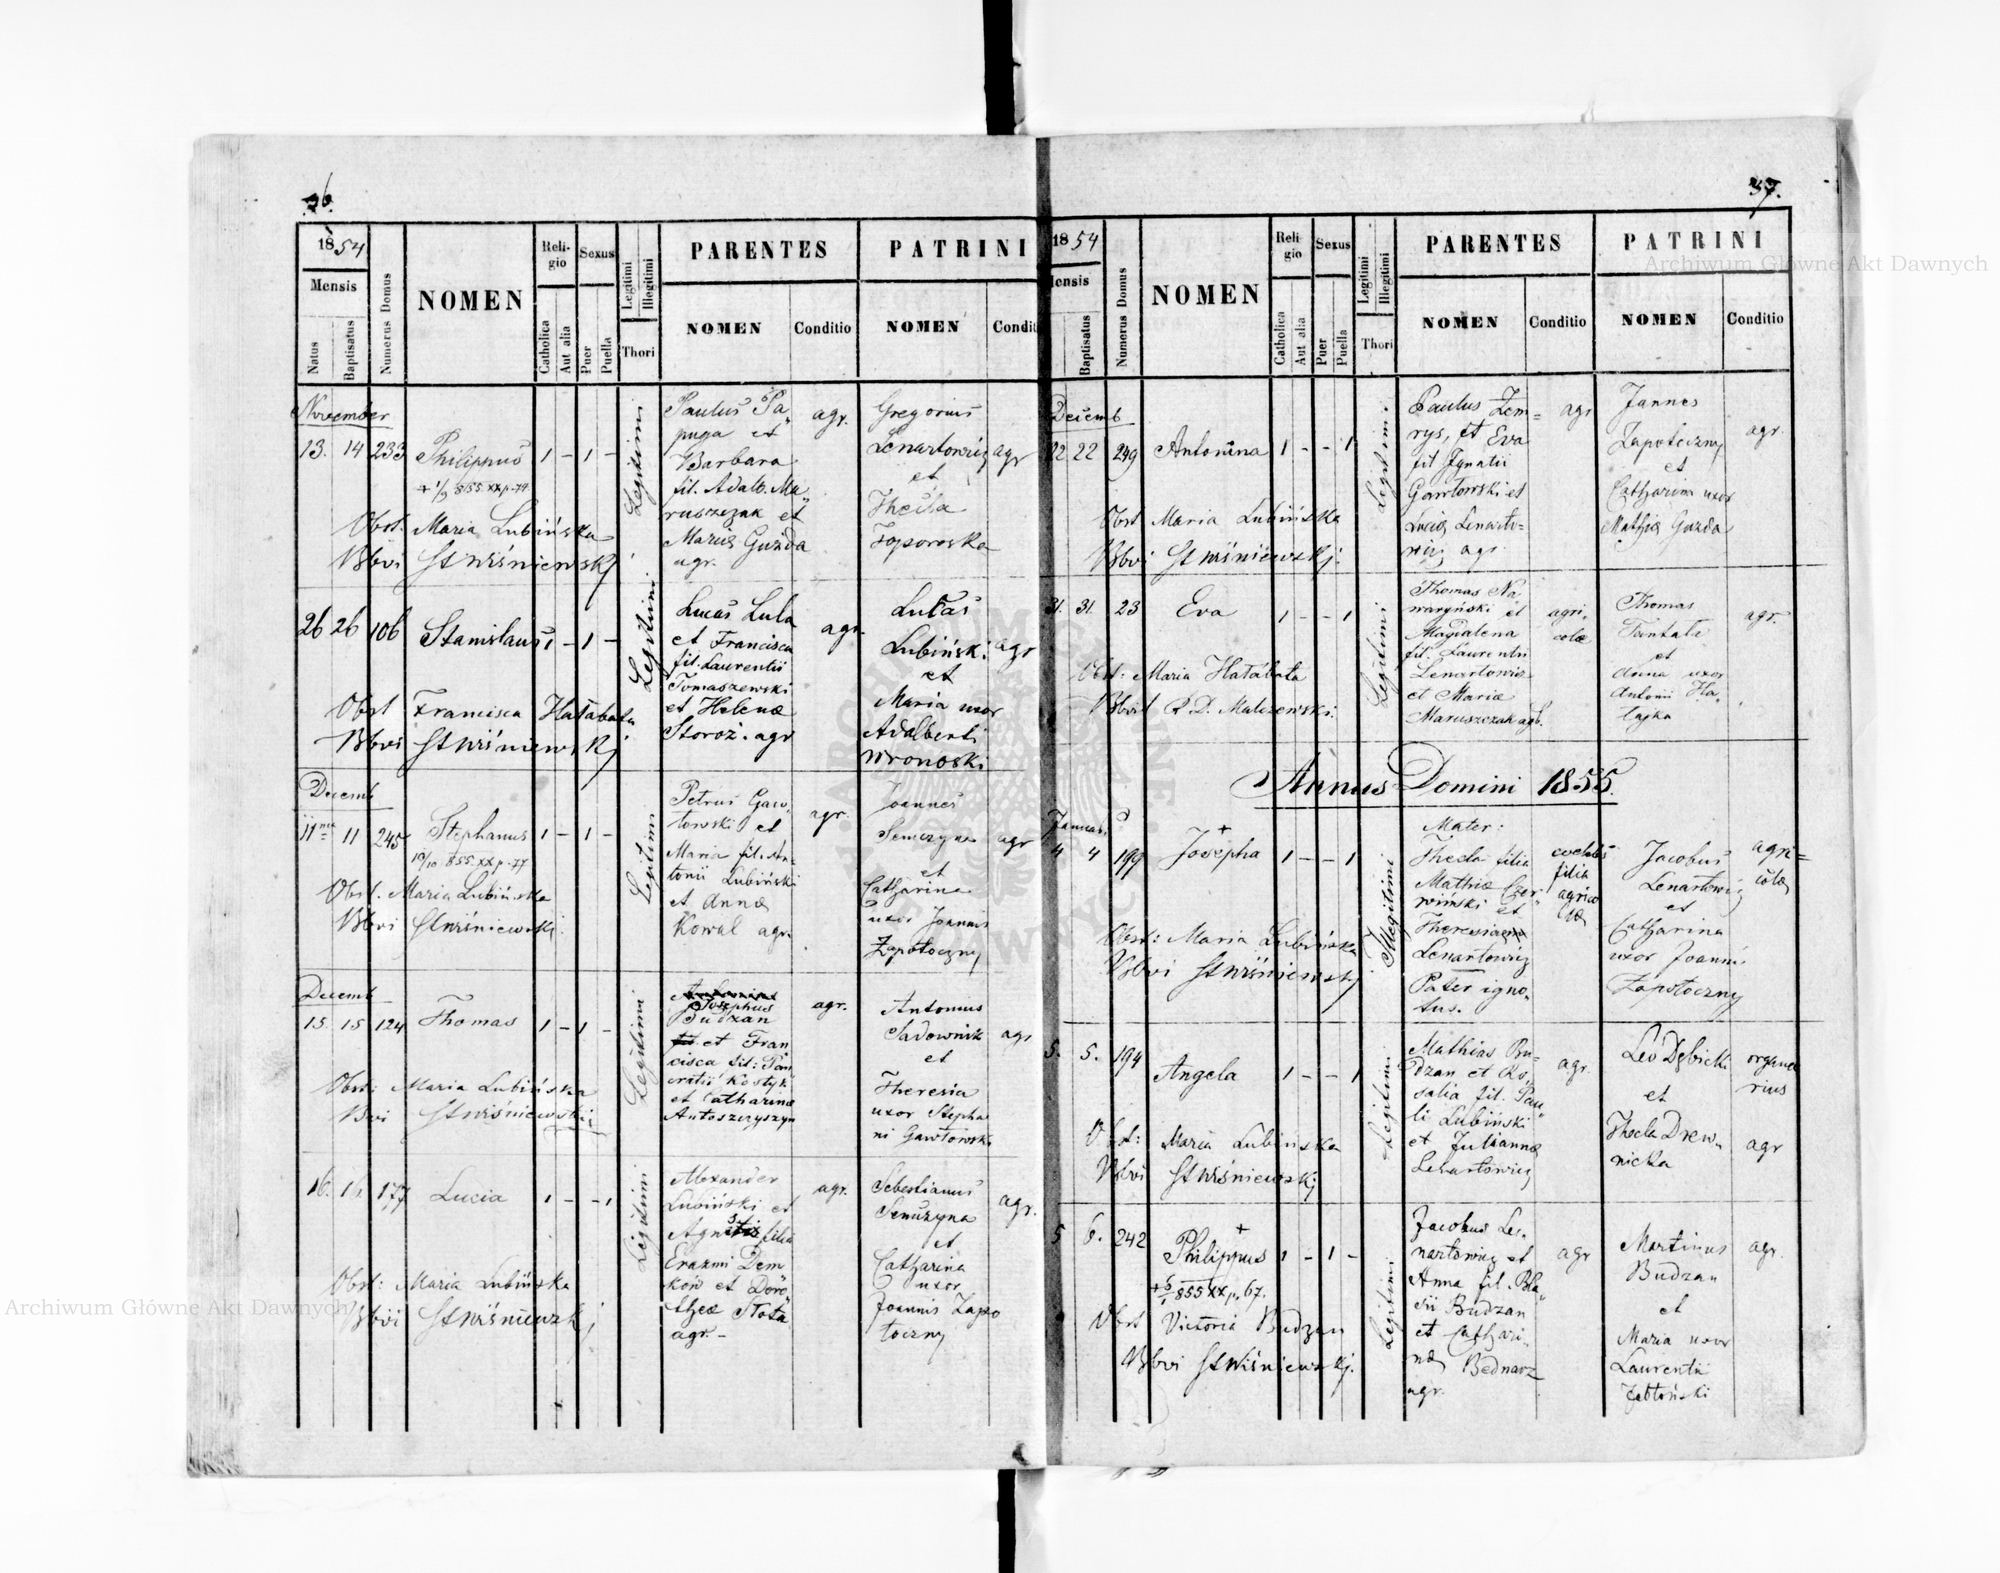 36.
18 54
Mensis
Natus
Baptisatus
Numerus Domus
NOMEN
Religio
Catholica
Aut alia
Sexus
Puer
Puella
Legitimi
Illegitimi
Thori
PARENTES
NOMEN
Conditio
PATRINI
NOMEN
Condit
November
13. 14 233 Philippus 1 - 1 -
Obst. Maria Lubińska
Bbvi St Wiśniewskj
Legitimi
Paulus Pa„
puga et
Barbara
fil. Adalb. Ma„
ruszczak et
Mariæ Guzda
agr.
agr.
Gregorius
Lenartowicz agr
et
Thecla
Toporoska
26 26 106 Stanislaus 1 - 1 -
Obst Francisca Hałabata
Bbvi St Wiśniewskj
Legitimi
Lucas Lula
et Francisca
fil. Laurentii
Tomaszewski
et Helenæ
Storoż. agr
agr.
Lukas
Lubiński agr
et
Maria uxor
Adalberti
Wronoski
Decemb
11 11 245 Stephanus 1 - 1 -
Obst. Maria Lubińska
Bbvi St Wiśniewski
Legitimi
Petrus Gaw„
łowski et
Maria fil. An„
tonii Lubiński
et Annæ
Kowal agr.
agr.
Joannes
Semczyna agr
et
Catharina
uxor Joannis
Zapotoczny
Decemb
15. 15 124 Thomas 1 - 1 -
Obst: Maria Lubińska
Bbvi St Wiśniewski
Legitimi
Josephus
Budzan
et Fran
cisca fil: Pan
cratii Kostyk
et Catharinæ
Antoszczyszyn
agr.
Antonius
Sadownik agr
et
Theresia
uxor Stepha
ni Gawłowski
16. 16. 177 Lucia 1 - - 1
Obst: Maria Lubińska
Bbvi St Wiśniewskj
Legitimi
Alexander
Lubiński et
Agnes filia
Erazmi Dem
ków et Doro„
theæ Słota
agr-
agr.
Sebestianus
Semczyna agr.
et
Catharina
uxor
Joannis Zapo
toczny
37.
18 54
Mensis
Baptisatus
Numerus Domus
NOMEN
Religio
Catholica
Aut alia
Sexus
Puer
Puella
Legitimi
Illegitimi
Thori
PARENTES
NOMEN
Conditio
PATRINI
NOMEN
Conditio
Decemb
22 22 249 Antonina 1 - - 1
Obst Maria Lubińska
Bbvi St Wiśniewskj.
Legitimi
Paulus Zem=
rys, et Eva
fil Ignatii
Gawłowski et
Luciæ Lenarto=
wicz agr.
agr
Jannes
Zapotoczny agr.
et
Catharina uxor
Mathiæ Guzda
31. 31. 23 Eva 1 - - 1
Obst: Maria Hałabata
Bbvi R. D. Malczewski.
Legitimi
Thomas Na„
waryński et
Magdalena
fil. Laurentii
Lenartowicz
et Mariæ
Maruszczak agr.
agri„
colæ
Thomas
Tantała agr.
et
Anna uxor
Antonii Ha„
łajka
Annus Domini 1855.
Januari
4 4 199 Josepha 1 - - 1
Obst: Maria Lubińska
Bbvi St Wiśniewskj
Illegitimi
Mater:
Thecla filia
Mathiæ Czer„
wiński et
Theresia
Lenartowicz
Pater igno„
tus.
filia
agrico
læ
Jacobus
Lenartowicz
et
Catharina
uxor Joannis
Zapotoczny
agri=
colæ
5. 5. 194 Angela 1 - - 1
Obst: Maria Lubińska
Bbvi St Wiśniewskj
Legitimi
Mathias Bu=
dzan et Ro„
salia fil. Pau„
li Lubiński
et Juliannæ
Lenartowicz
agr.
Leo Dębicki organa
rius
et
Thecla Drew„
nicka agr
5 6. 242 Philippus 1 - 1 -
Obst Victoria Budzan
Bbvi St Wiśniewskj.
Legitimi
Jacobus Le„
nartowicz et
Anna fil. Bla„
sii Budzan
et Cathari„
næ Bednarz
agr.
agr
Martinus agr.
Budzan
et
Maria uxor
Laurentii
Jabłoński
Archiwum Główne Akt Dawnych
Archiwum Główne Akt Dawnych